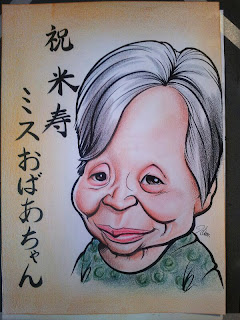 祝
米寿
ミスおばあちゃん